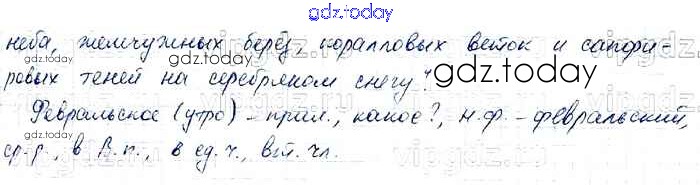 gdz.today
неба, жемчужных берёз, коралловых веток и сапфи-
gdz.today
ровых теней на серебряном снегу?
gdz.today
gdz.today
Февральское (утро) - прил., какое?, н.ф. - февральский,
ср.р., в В.п., в ед.ч., вт. чл.
gdz.today